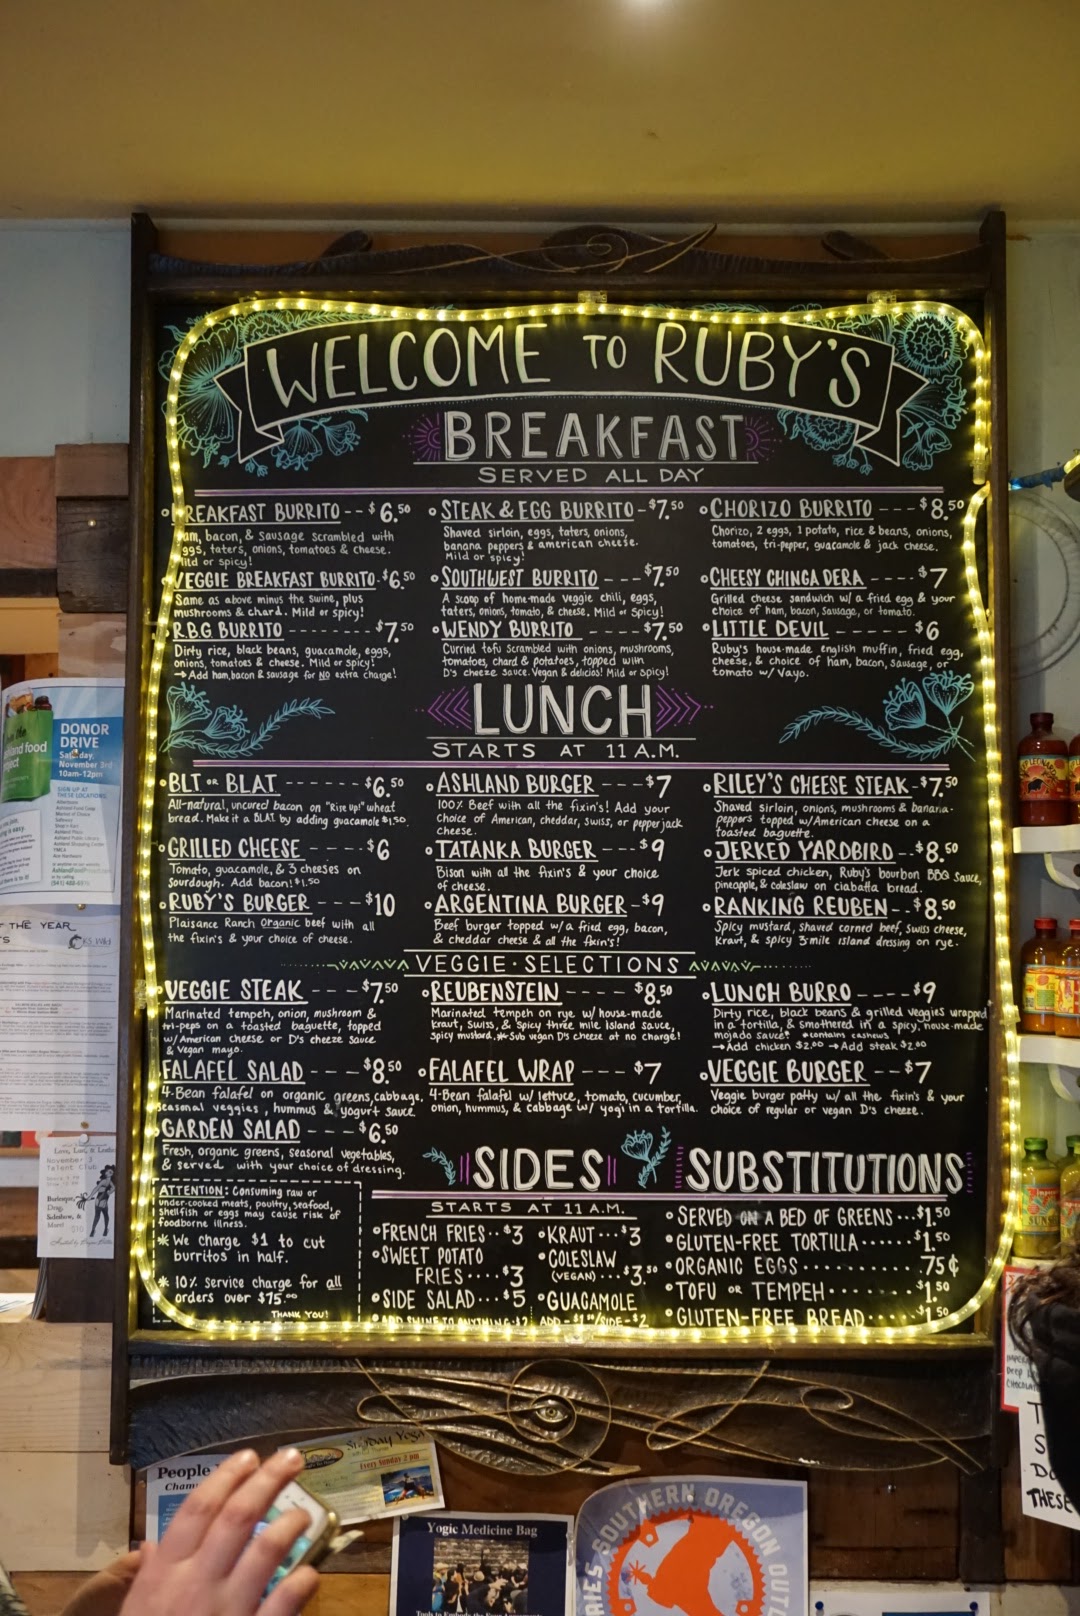 WELCOME TO RUBY'S
BREAKFAST
SERVED ALL DAY
BREAKFAST BURRITO -- $6.50
Ham, bacon, & sausage scrambled with
eggs, taters, onions, tomatoes & cheese.
Mild or spicy!
VEGGIE BREAKFAST BURRITO - $6.50
Same as above minus the swine, plus
mushrooms & chard. Mild or spicy!
R.B.G BURRITO -------- $7.50
Dirty rice, black beans, guacamole, eggs,
onions, tomatoes & cheese. Mild or spicy!
→ Add ham, bacon & sausage for NO extra charge!
STEAK & EGG BURRITO - $7.50
Shaved sirloin, eggs, taters, onions,
banana peppers & american cheese.
Mild or spicy!
SOUTHWEST BURRITO --- $7.50
A scoop of home-made veggie chili, eggs,
taters, onions, tomato, & cheese. Mild or Spicy!
WENDY BURRITO ---- $7.50
Curried tofu scrambled with onions, mushrooms,
tomatoes, chard & potatoes, topped with
D's cheeze sauce. Vegan & delicios! Mild or spicy!
CHORIZO BURRITO --- $8.50
Chorizo, 2 eggs, 1 potato, rice & beans, onions,
tomatoes, tri-pepper, guacamole & jack cheese.
CHEESY CHINGA DERA ---- $7
Grilled cheese sandwich w/ a fried egg & your
choice of ham, bacon, sausage, or tomato.
LITTLE DEVIL ------ $6
Ruby's house-made english muffin, fried egg,
cheese, & choice of ham, bacon, sausage, or
tomato w/ Vayo.
LUNCH
STARTS AT 11 A.M.
BLT OR BLAT ------ $6.50
All-natural, uncured bacon on "Rise Up!" wheat
bread. Make it a BLAT by adding guacamole $1.50.
GRILLED CHEESE ----- $6
Tomato, guacamole, & 3 cheeses on
sourdough. Add bacon! $1.50
RUBY'S BURGER --- $10
Plaisance Ranch Organic beef with all
the fixin's & your choice of cheese.
ASHLAND BURGER --- $7
100% Beef with all the fixin's! Add your
choice of American, cheddar, swiss, or pepper jack
cheese.
TATANKA BURGER --- $9
Bison with all the fixin's & your choice
of cheese.
ARGENTINA BURGER - $9
Beef burger topped w/a fried egg, bacon,
& cheddar cheese & all the fixin's!
RILEY'S CHEESE STEAK - $7.50
Shaved sirloin, onions, mushrooms & banana-
peppers topped w/American cheese on a
toasted baguette.
JERKED YARDBIRD -- $8.50
Jerk spiced chicken, Ruby's bourbon BBQ sauce,
pineapple, & coleslaw on ciabatta bread.
RANKING REUBEN -- $8.50
Spicy mustard, shaved corned beef, swiss cheese,
kraut, & spicy 3-mile island dressing on rye.
VEGGIE · SELECTIONS
VEGGIE STEAK --- $7.50
Marinated tempeh, onion, mushroom &
tri-peps on a toasted baguette, topped
w/American cheese or D's cheeze sauce
& vegan mayo.
FALAFEL SALAD --- $8.50
4-Bean falafel on organic greens, cabbage,
seasonal veggies, hummus & yogurt sauce
GARDEN SALAD --- $6.50
Fresh, organic greens, seasonal vegetables,
& served with your choice of dressing.
REUBENSTEIN ---- $8.50
Marinated tempeh on rye w/ house-made
kraut, swiss, & spicy three mile island sauce,
spicy mustard. *Sub vegan D's cheeze at no charge!
FALAFEL WRAP --- $7
4-Bean falafel w/ lettuce, tomato, cucumber,
onion, hummus, & cabbage w/ yogi in a tortilla.
LUNCH BURRO ---- $9
Dirty rice, black beans & grilled veggies wrapped
in a tortilla, & smothered in a spicy, house-made
mojado sauce! *contains cashews
→ Add chicken $2.00 → Add steak $2.00
VEGGIE BURGER -- $7
Veggie burger patty w/ all the fixin's & your
choice of regular or vegan D's cheeze.
ATTENTION: Consuming raw or
under-cooked meats, poultry, seafood,
shellfish or eggs may cause risk of
foodborne illness.
* We charge $1 to cut
burritos in half.
* 10% service charge for all
orders over $75.00
THANK YOU!
SIDES
STARTS AT 11 A.M.
FRENCH FRIES .. $3
SWEET POTATO
FRIES .... $3
SIDE SALAD ... $5
ADD SWINE TO ANYTHING - $2
KRAUT ... $3
COLESLAW
(VEGAN) ... $3.50
GUACAMOLE
ADD - $1 /SIDE - $2
SUBSTITUTIONS
SERVED ON A BED OF GREENS ... $1.50
GLUTEN-FREE TORTILLA ...... $1.50
ORGANIC EGGS ............ .75¢
TOFU OR TEMPEH ......... $1.50
GLUTEN-FREE BREAD ..... $1.50
DONOR
DRIVE
Saturday,
November 3rd
10am-12pm
SIGN UP AT
THESE LOCATIONS
F THE YEAR
KS Wild
November 3
Talent Club
Burlesque,
Drag,
Sideshow, &
More!
People
Sunday Yoga
Every Sunday 2 pm
Yogic Medicine Bag
SOUTHERN OREGON OUT
THESE